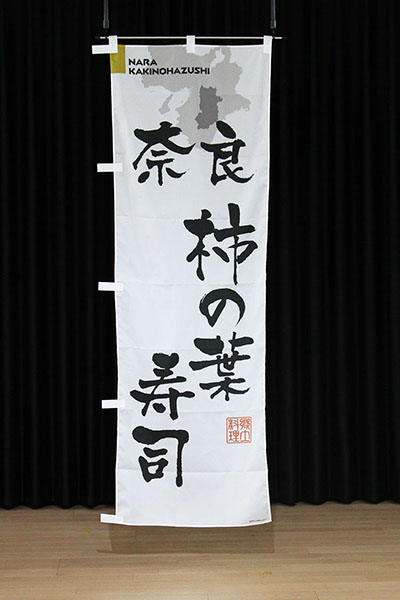 NARA
KAKINOHAZUSHI
奈良
柿の葉
寿司
郷土
料理